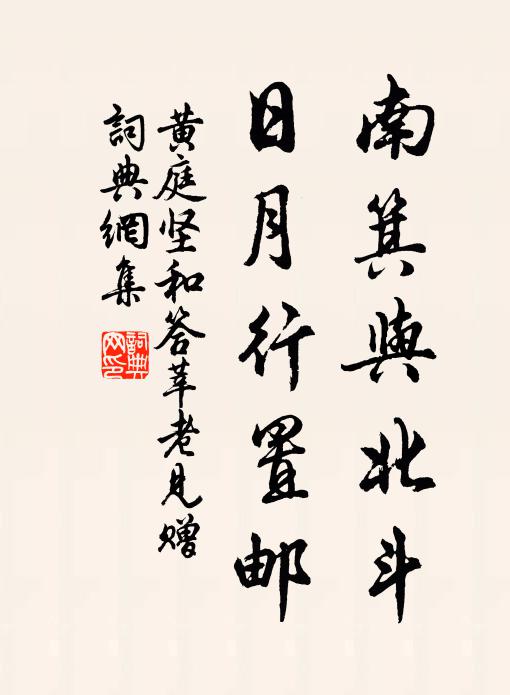 南箕與北斗
日月行置邮
黄庭坚和答莘老見赠
詞典網集
詞典網印